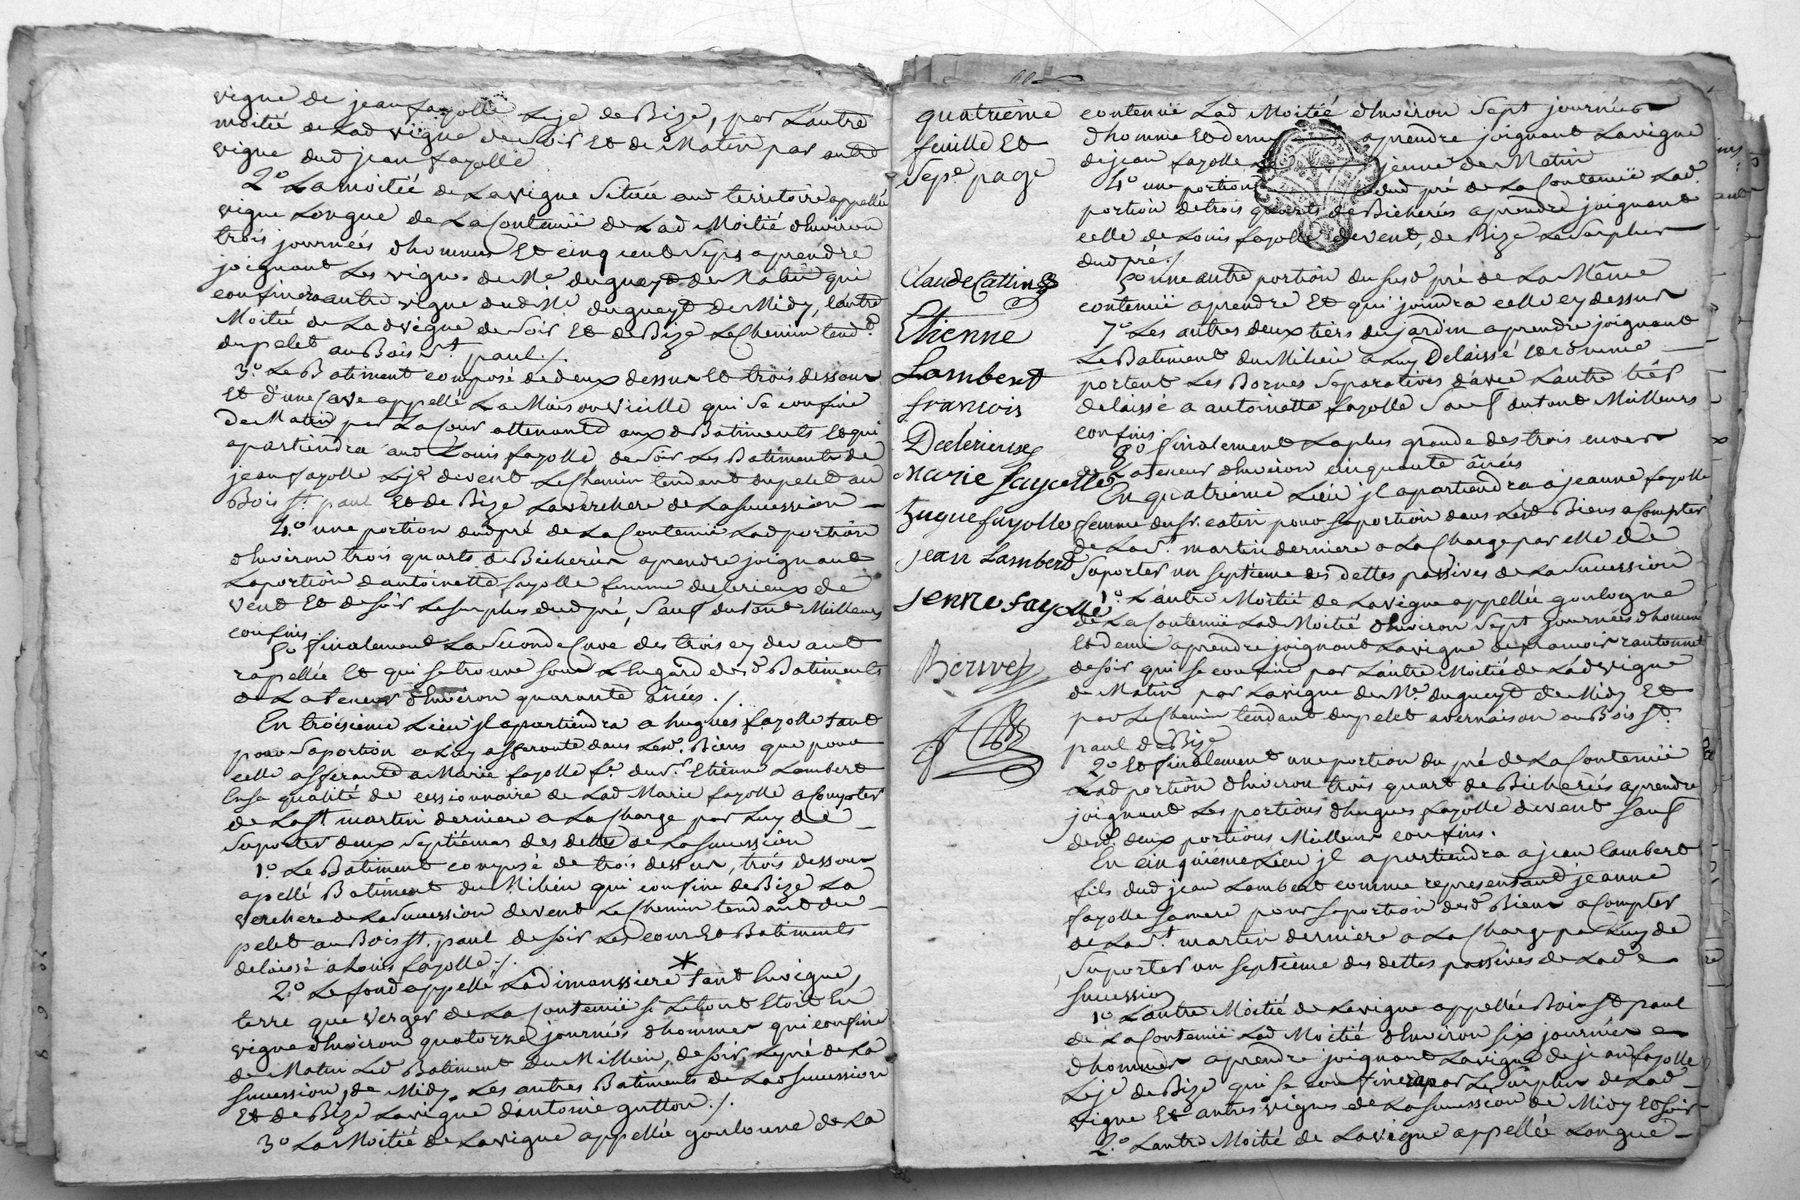 vigne de jean fayolle Leje de Bize, par Lautre
moitié de Lad viigne de soir Et de Matin par autre
vigne dud jean fayolle
2º La moitié de La vigne Située aud territoire appellée
vigne Longue de La Contenüe de Lad Moitié d'huviron
trois journées d'hommes Et cinq aprendre
joignant Les vignes de Mr duguayt de Matin qui
confinera autre vigne dud Mr dugueyt de Midy, Lautre
Moitié de Ladvigne de soir Et de Bize Le Chemin tendt
du pelet au Bois St paul ./.
3º Le Batiment composé de deux dessus Et trois dessous
Et d'une Cave appellé La Maison Vieille qui Se confine
De Matin par La Cour attenante aux d Batiments Et qui
apartiendra aud Louis fayolle de soir Les Batiments de
jean fayolle Leje de vent Le Chemin tendant du pelet au
Bois St paul Et de Bize La verchere de La succession
4º une portion dud pré de La Contenüe Lad portion
d'huviron trois quarts de Bicherées aprendre joignant
La portion d'antoinette fayolle femme delerieux de
vent Et de soir Le surplus dud pré, Sauf du tout Meilleurs
confins
5º finalement La Seconde Cuve des trois cy devant
rapellée Et qui se trouve sous L'hugard desd Batiments
de La teneur d'huviron quarante ânées ./.
En troisieme Lieu jl apartiendra a hugues fayolle tant
pour Sa portion a Luy afferante dans Lesd. Biens que pour
celle afferante a Marie fayolle fe du Sr Etienne Lambert
En Sa qualité de cessionnaire de Lad Marie fayolle a Compter
de La St martin derniere a La Charge par Luy de
Suporter deux Septiemes des dettes de La succession
1º Le Batiment composé de trois dessus, trois dessous
apellé Batiment du Milieu qui confine de Bize La
verchere de La succession de vent Le Chemin tendant du
pelet au Bois St. paul de soir Les Cour Et Batiments
delaissé a Louis fayolle ./.
2º Le fond appellé Ladimanssiere * tant En vigne,
terre que verger de La Contenüe si Le tout Etoit En
vigne d'huviron quatorze journées d'hommes qui confine
de Matin Led Batiment du Millieu, de soir Le pré de La
succession, de Midy Les autres Batiments de Lad succession
Et de Bize La vigne d'antoine gutton ./.
3º La Moitié de La vigne appellée goulonne de La
quatrieme
feuille Et
Sepe page
Claude Cattin
Etienne
Lambert
francois
Delerieux
Marie fayolle
hugue fayolle
jean Lambert
jenne fayolle
contenüe Lad Moitié d'huviron Sept journées
d'homme Et demi aprendre joignant La vigne
de jean fayolle jeune de Matin
4º une portion dud pré de La Contenüe Lad.
portion de trois quarts de Bicherées aprendre joignant
celle de Louis fayolle de vent, de Bize Le Surplus
dud pré ./.
5º une autre portion du susd pré de La Même
contenüe aprendre Et qui joindra celle cy dessus
7º Les autres deux tiers du jardin aprendre joignant
Le Batiment du Milieu a Luy Delaissé
portent Les Bornes Separatives d'avec L'autre tiers
delaissé a antoinette fayolle Sauf du tout Meilleurs
confins.
8º finalement La plus grande des trois cuves
de La teneur d'huviron cinquante ânées
En quatrieme Lieu jl apartiendra a jeanne fayolle
femme du Sr. Catin pour Sa portion dans Lesd Biens a Compter
de La St. martin derniere a La Charge par elle de
Suporter un Septieme des dettes passives de La Succession
1º. L'autre Moitié de La vigne appellée goulogne
de La Contenüe Lad Moitié d'huviron Sept journées d'homme
Et demi aprendre joignant La vigne de francois rantonnet
de soir qui se confine par L'autre Moitié de Lad vigne
de Matin par La vigne de Mr. dugueyt de Midy Et
par Le Chemin tendant du pelet a vernaison au Bois St.
paul de Bize
2º Et finalement une portion du pré de La Contenüe
Lad portion d'huviron trois quart de Bicherées aprendre
joignant Les portions d'hugues fayolle de vent Sauf
desd. deux portions Meilleurs confins.
En cinquieme Lieu jl apartiendra a jean Lambert
fils dud jean Lambert comme representant jeanne
fayolle Sa mere pour Sa portion desd Biens a Compter
de La St. martin derniere a La Charge par Luy de
Suporter un Septieme des dettes passives de Lad
succession
1º L'autre Moitié de La vigne appellée Bois St paul
de La Contenüe Lad Moitié d'huviron six journées
d'hommes aprendre joignant La vigne de jean fayolle
Leje de Bize qui se confinera par Le surplus de Lad
vigne Et autres vignes de La succession de Midy Et soir
2º. L'autre Moitié de La vigne appellée Longue